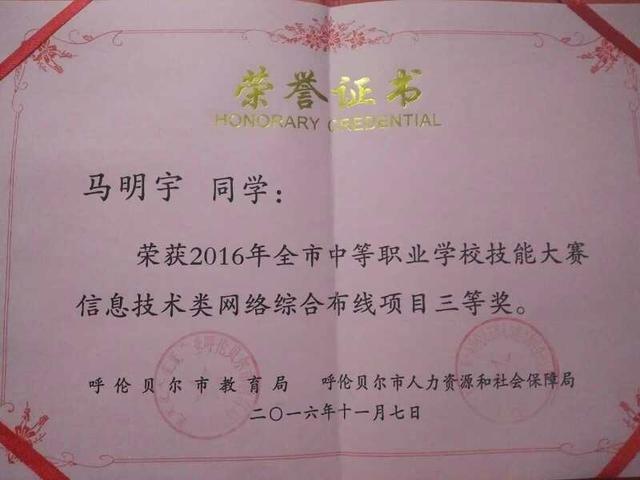 荣誉证书
HONORARY CREDENTIAL
马明宇 同学：
荣获2016年全市中等职业学校技能大赛
信息技术类网络综合布线项目三等奖。
呼伦贝尔市教育局 呼伦贝尔市人力资源和社会保障局
二〇一六年十一月七日